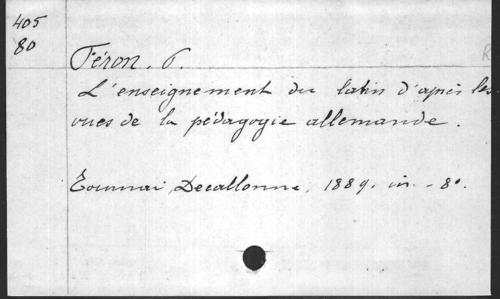 405
80
Féron. P.
L'enseignement du latin d'après les
vues de la pédagogie allemande.
Tournai, Decallonne, 1889. in-8o.